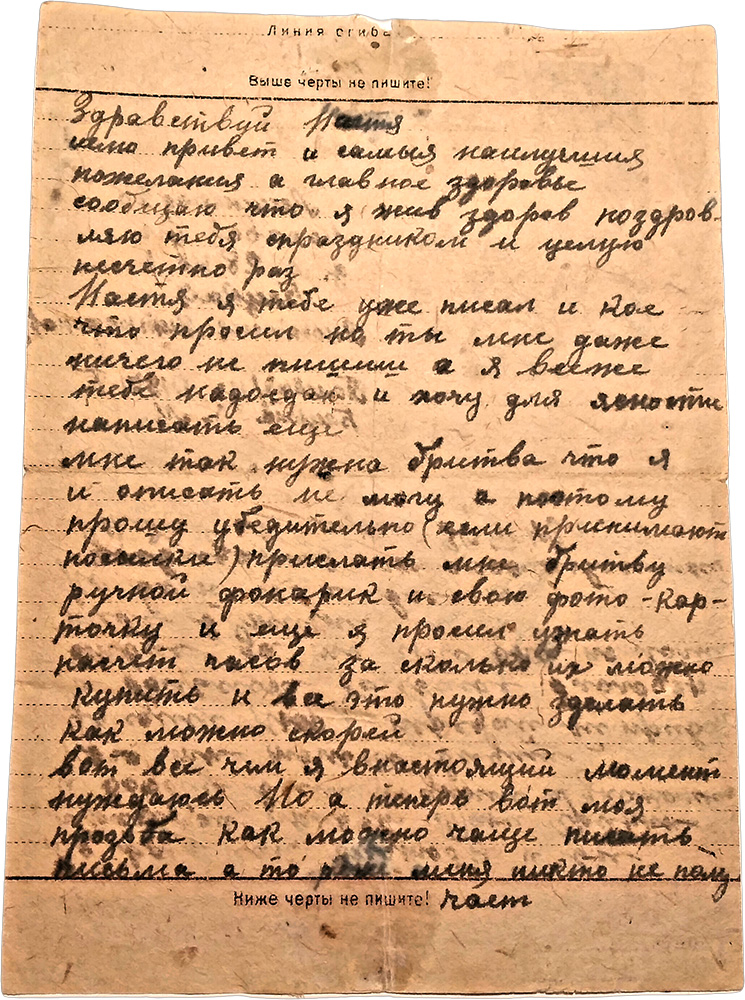 Линия сгиба
Выше черты не пишите!
Здравствуй Настя
шлю привет и самыя наилучшия
пожелания а главное здоровье
сообщаю что я жив здоров поздров-
ляю тебя спраздником и целую
несчетно раз
Настя я тебе уже писал и кое
что просил но ты мне даже
ничего не пишиш а я всеже
тебе надоедаю и хочу для ясности
написать еще
мне так нужна бритва что я
и описать не могу а поэтому
прошу убедительно (если принимают
посылки) прислать мне бритву
ручной фонарик и свою фото-кар-
точку и еще я просил узнать
насчет часов за сколько их можно
купить и все это нужно зделать
как можно скорей
вот все чем я внастоящий момент
нуждаюсь Но а теперь вот моя
прозьба как можно чаще писать
письма а то меня никто не полу
Ниже черты не пишите! чает